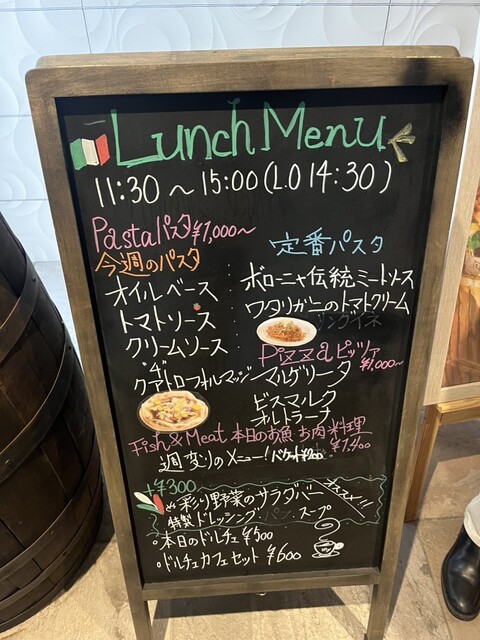 Lunch Menu
11:30 ～ 15:00 (L.O 14:30)
Pasta パスタ ¥1,000～
今週のパスタ
オイルベース
トマトソース
クリームソース
定番パスタ
ボローニャ伝統ミートソース
ワタリガニのトマトクリーム
リングイネ
Pizza ピッツァ ¥1,000～
クアトロフォルマッジ
マルゲリータ
ビスマルク
オルトラーナ
Fish & Meat 本日のお魚 お肉料理 ¥1,400
週変りのメニュー!
+¥300
彩り野菜のサラダバー オススメ!!
特製ドレッシング パン スープ
・本日のドルチェ ¥500
・ドルチェカフェセット ¥600